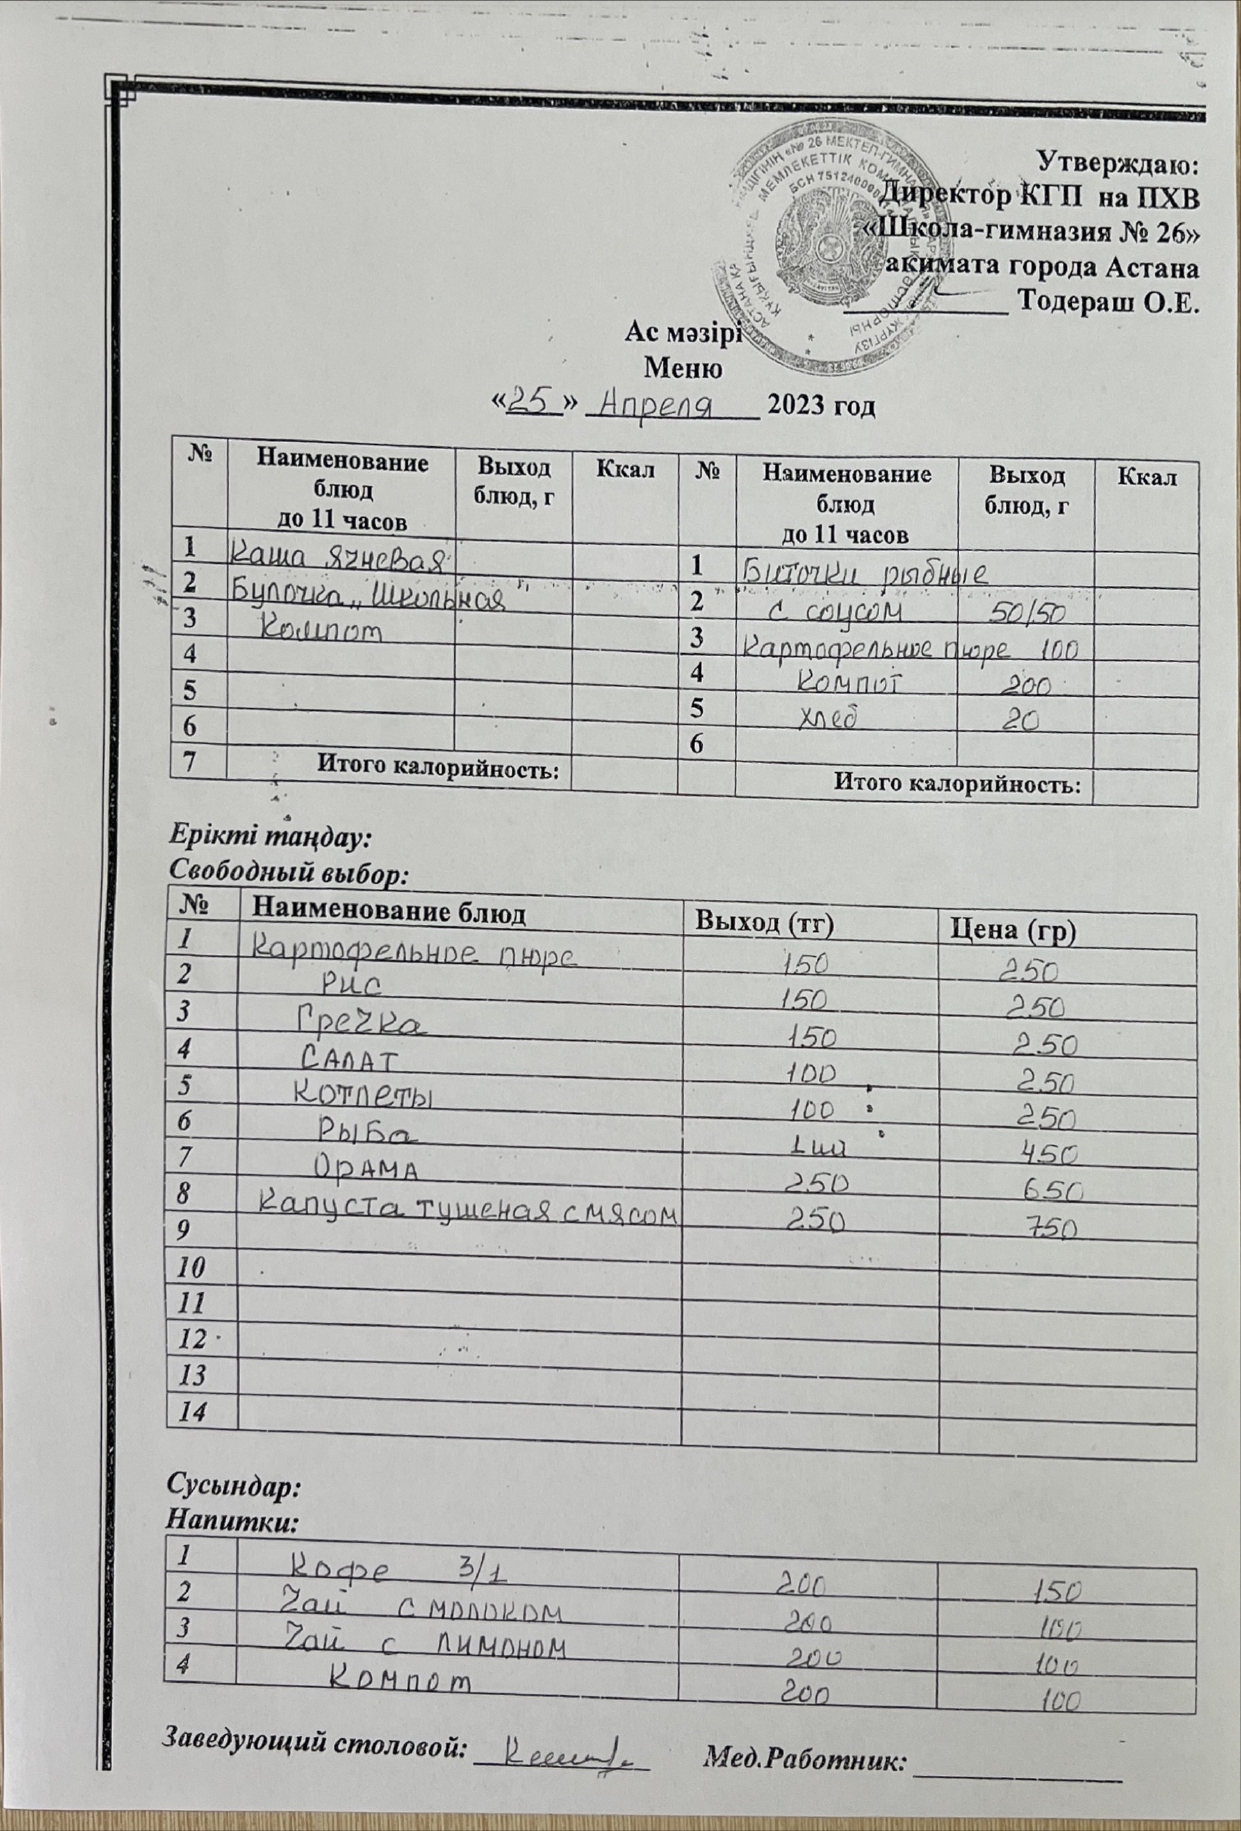 Утверждаю:
Директор КГП на ПХВ
«Школа-гимназия № 26»
акимата города Астана
Тодераш О.Е.
Ас мәзірі
Меню
«25» Апреля 2023 год
№ Наименование блюд до 11 часов Выход блюд, г Ккал № Наименование блюд до 11 часов Выход блюд, г Ккал
1 Каша ячневая 1 Биточки рыбные
2 Булочка „Школьная" 2 с соусом 50/50
3 Компот 3 Картофельное пюре 100
4 4 Компот 200
5 5 хлеб 20
6 6
7 Итого калорийность: Итого калорийность:
Ерікті таңдау:
Свободный выбор:
№ Наименование блюд Выход (тг) Цена (гр)
1 Картофельное пюре 150 250
2 Рис 150 250
3 Гречка 150 250
4 Салат 100 250
5 Котлеты 100 250
6 Рыба 1шт 450
7 Орама 250 650
8 Капуста тушеная с мясом 250 750
9
10
11
12
13
14
Сусындар:
Напитки:
1 Кофе 3/1 200 150
2 Чай с молоком 200 100
3 Чай с лимоном 200 100
4 Компот 200 100
Заведующий столовой: Мед.Работник: